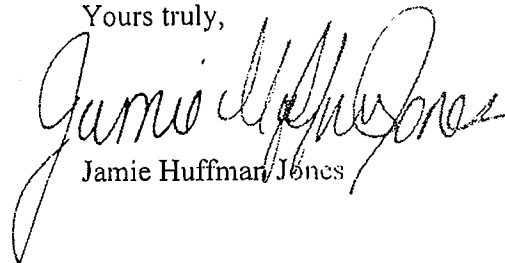 Yours truly,
Jamie Huffman Jones
Jamie Huffman Jones